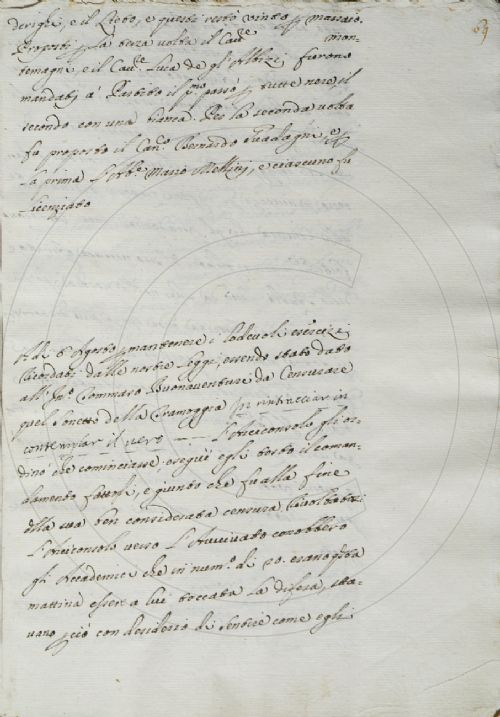 69
derighi, e il Libro, e questo restò vinto p mancaro.
Proposti p la terza volta il Cav.e Mon-
temagni e il Cav.e Luca de gli Albizi furono
mandati à Partito il p.mo passò p tutte nere, il
secondo con una bianca. Per la seconda volta
fu proposto il Can.co Bernardo Guadagni, e p
la prima l'Ab.e Mario Mellini, e ciascuno fu
licenziato
A dì 6 Agosto p mantenere i lodevoli esercizi
ricordati dalle nostre leggi, essendo stato dato
all' Tommaso Buonaventuri da Censurare
quel Sonetto della Tramoggia In rintracciar in
contemplar il vero ---- L'Arciconsolo gli or-
dinò che cominciasse: eseguì egli tosto il coman-
damento fattoli, e giunto che fu alla fine
della sua ben considerata censura rivoltatosi
l'Arciconsolo verso l'Avvivato conobbero
gli Accademici che in num.o di 20. erano q.ta
mattina essere a lui toccata la difesa, sta-
vano p ciò con desiderio di sentire come egli